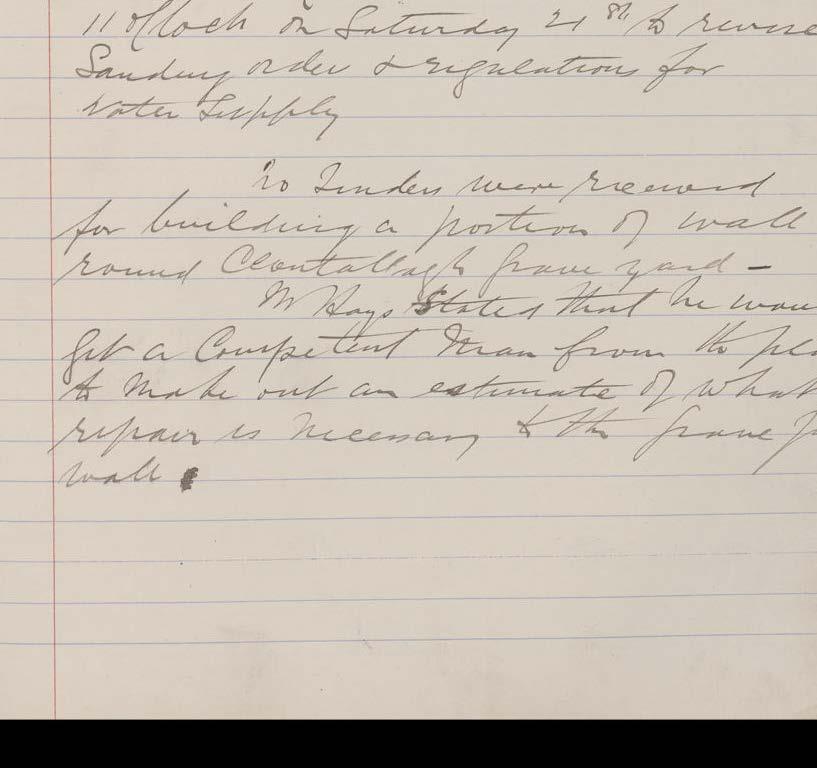 11 o'Clock on Saturday 21st to revise
Sandeng order & regulations for
Water Supply
No Tenders were received
for building a portion of wall
round Clontallagh Grave yard –
Mr Hays Stated that he wou
get a Competent Man from the pla
to make out an estimate of what
repair is necessary to the Grave y
wall